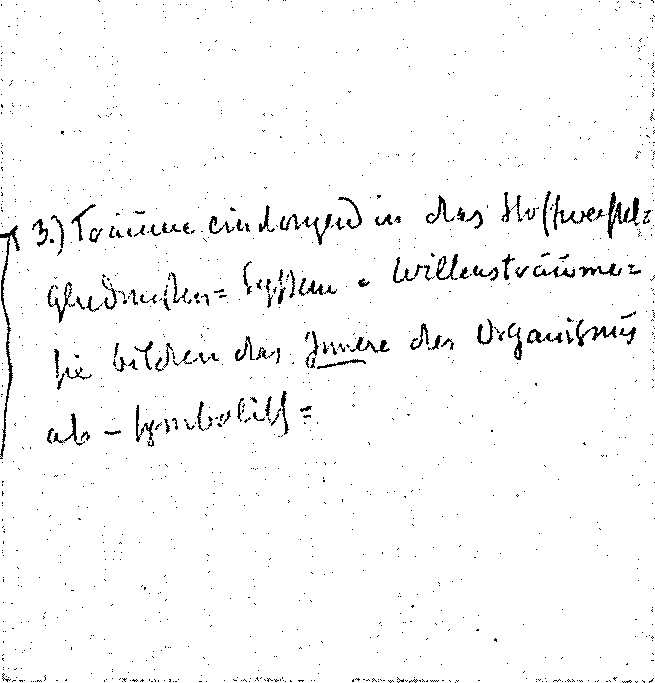 3.) Träume eindringend in das Stoffwechsel=
Gliedmaßen= System = Willensträume =
sie bilden das Innere des Organismus
ab – symbolisch =